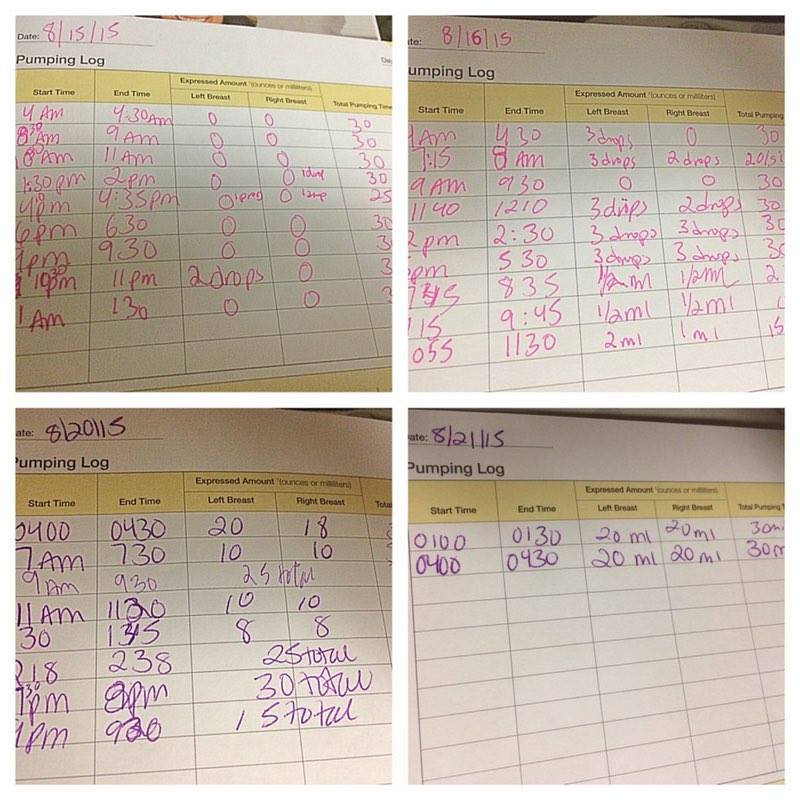 Date: 8/15/15
Pumping Log
Expressed Amount *(ounces or milliliters)
Start Time End Time Left Breast Right Breast Total Pumping Time
4 Am 4:30Am 0 0 30
830 Am 9 Am 0 0 30
Am 11 Am 0 0 30
1:30pm 2pm 0 0 1drop 30
4pm 4:35pm 0 0 25
6pm 630 0 0 30
9pm 930 0 0 3
1030pm 11pm 2 drops 0 3
1 Am 130 0 0
ate: 8/16/15
umping Log
Expressed Amount *(ounces or milliliters)
Start Time End Time Left Breast Right Breast Total Pumping
Am 430 3 drops 0 30
7:15 8 Am 3 drops 2 drops 20/5
9 Am 930 0 0 30
1140 1210 3 drips 2 drops 30
2pm 2:30 3 drops 3 drops 30
pm 530 3 drops 3 drops 30
745 835 1/2 ml 1/2 ml 2
15 9:45 1/2 ml 1/2 ml
055 1130 2 ml 1 ml 15
ate: 8/20/15
Pumping Log
Expressed Amount *(ounces or milliliters)
Start Time End Time Left Breast Right Breast Total
0400 0430 20 18
7 Am 730 10 10
9 Am 930 25 total
11 Am 1120 10 10
30 145 8 8
218 238 25 total
730 pm 8pm 30 total
9pm 920 15 total
ate: 8/21/15
Pumping Log
Expressed Amount *(ounces or milliliters)
Start Time End Time Left Breast Right Breast Total Pumping T
0100 0130 20 ml 20 ml 30m
0400 0430 20 ml 20 ml 30m